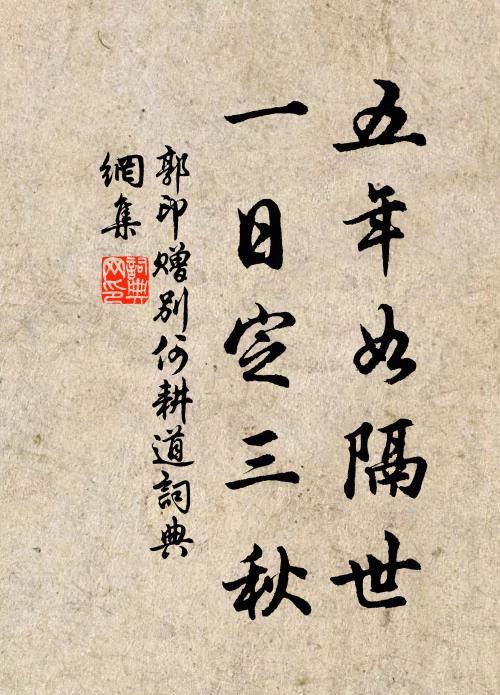 五年如隔世
一日定三秋
郭印贈別何耕道詞典
網集
詞典
网印